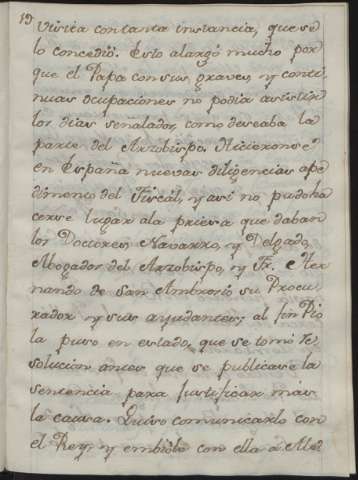 19
visita con tanta instancia, que se
lo concedió. Esto alargó mucho por
que el Papa con sus graves, y conti
nuas ocupaciones no podia asistir
los dias señalados, como deseaba la
parte del Arzobispo. Hicieronse
en España nuevas diligencias a pe
dimento del Fiscál, y asi no pudo ha
cerse lugar a la priesa que daban
los Doctores Navarro, y Delgado,
Abogados del Arzobispo, y Fr. Her
nando de San Ambrosio su Procu
rador y sus ayudantes; al fin Pio
la puso en estado, que se tomó re
solucion antes que se publicase la
sentencia para justificar mas
la causa. Quiso comunicarlo con
el Rey, y embiole con ella a